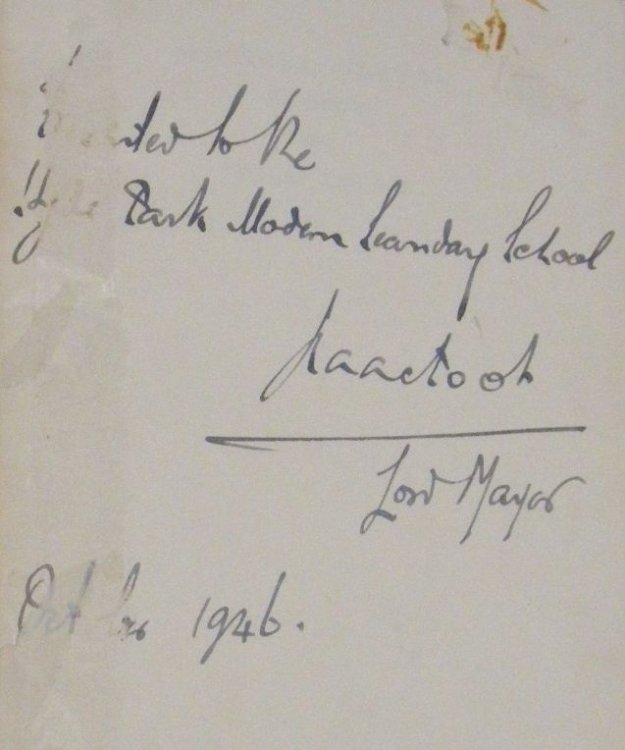 Presented to the
Hyde Park Modern Secondary School
Isaac Foot
Lord Mayor
October 1946.